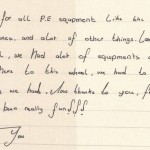 for all P.E equpment. Like the
and alot of other things.
, we Had alot of equpments
to this school, we had to
we had. Now thanks to you,
been really fun!!!
You